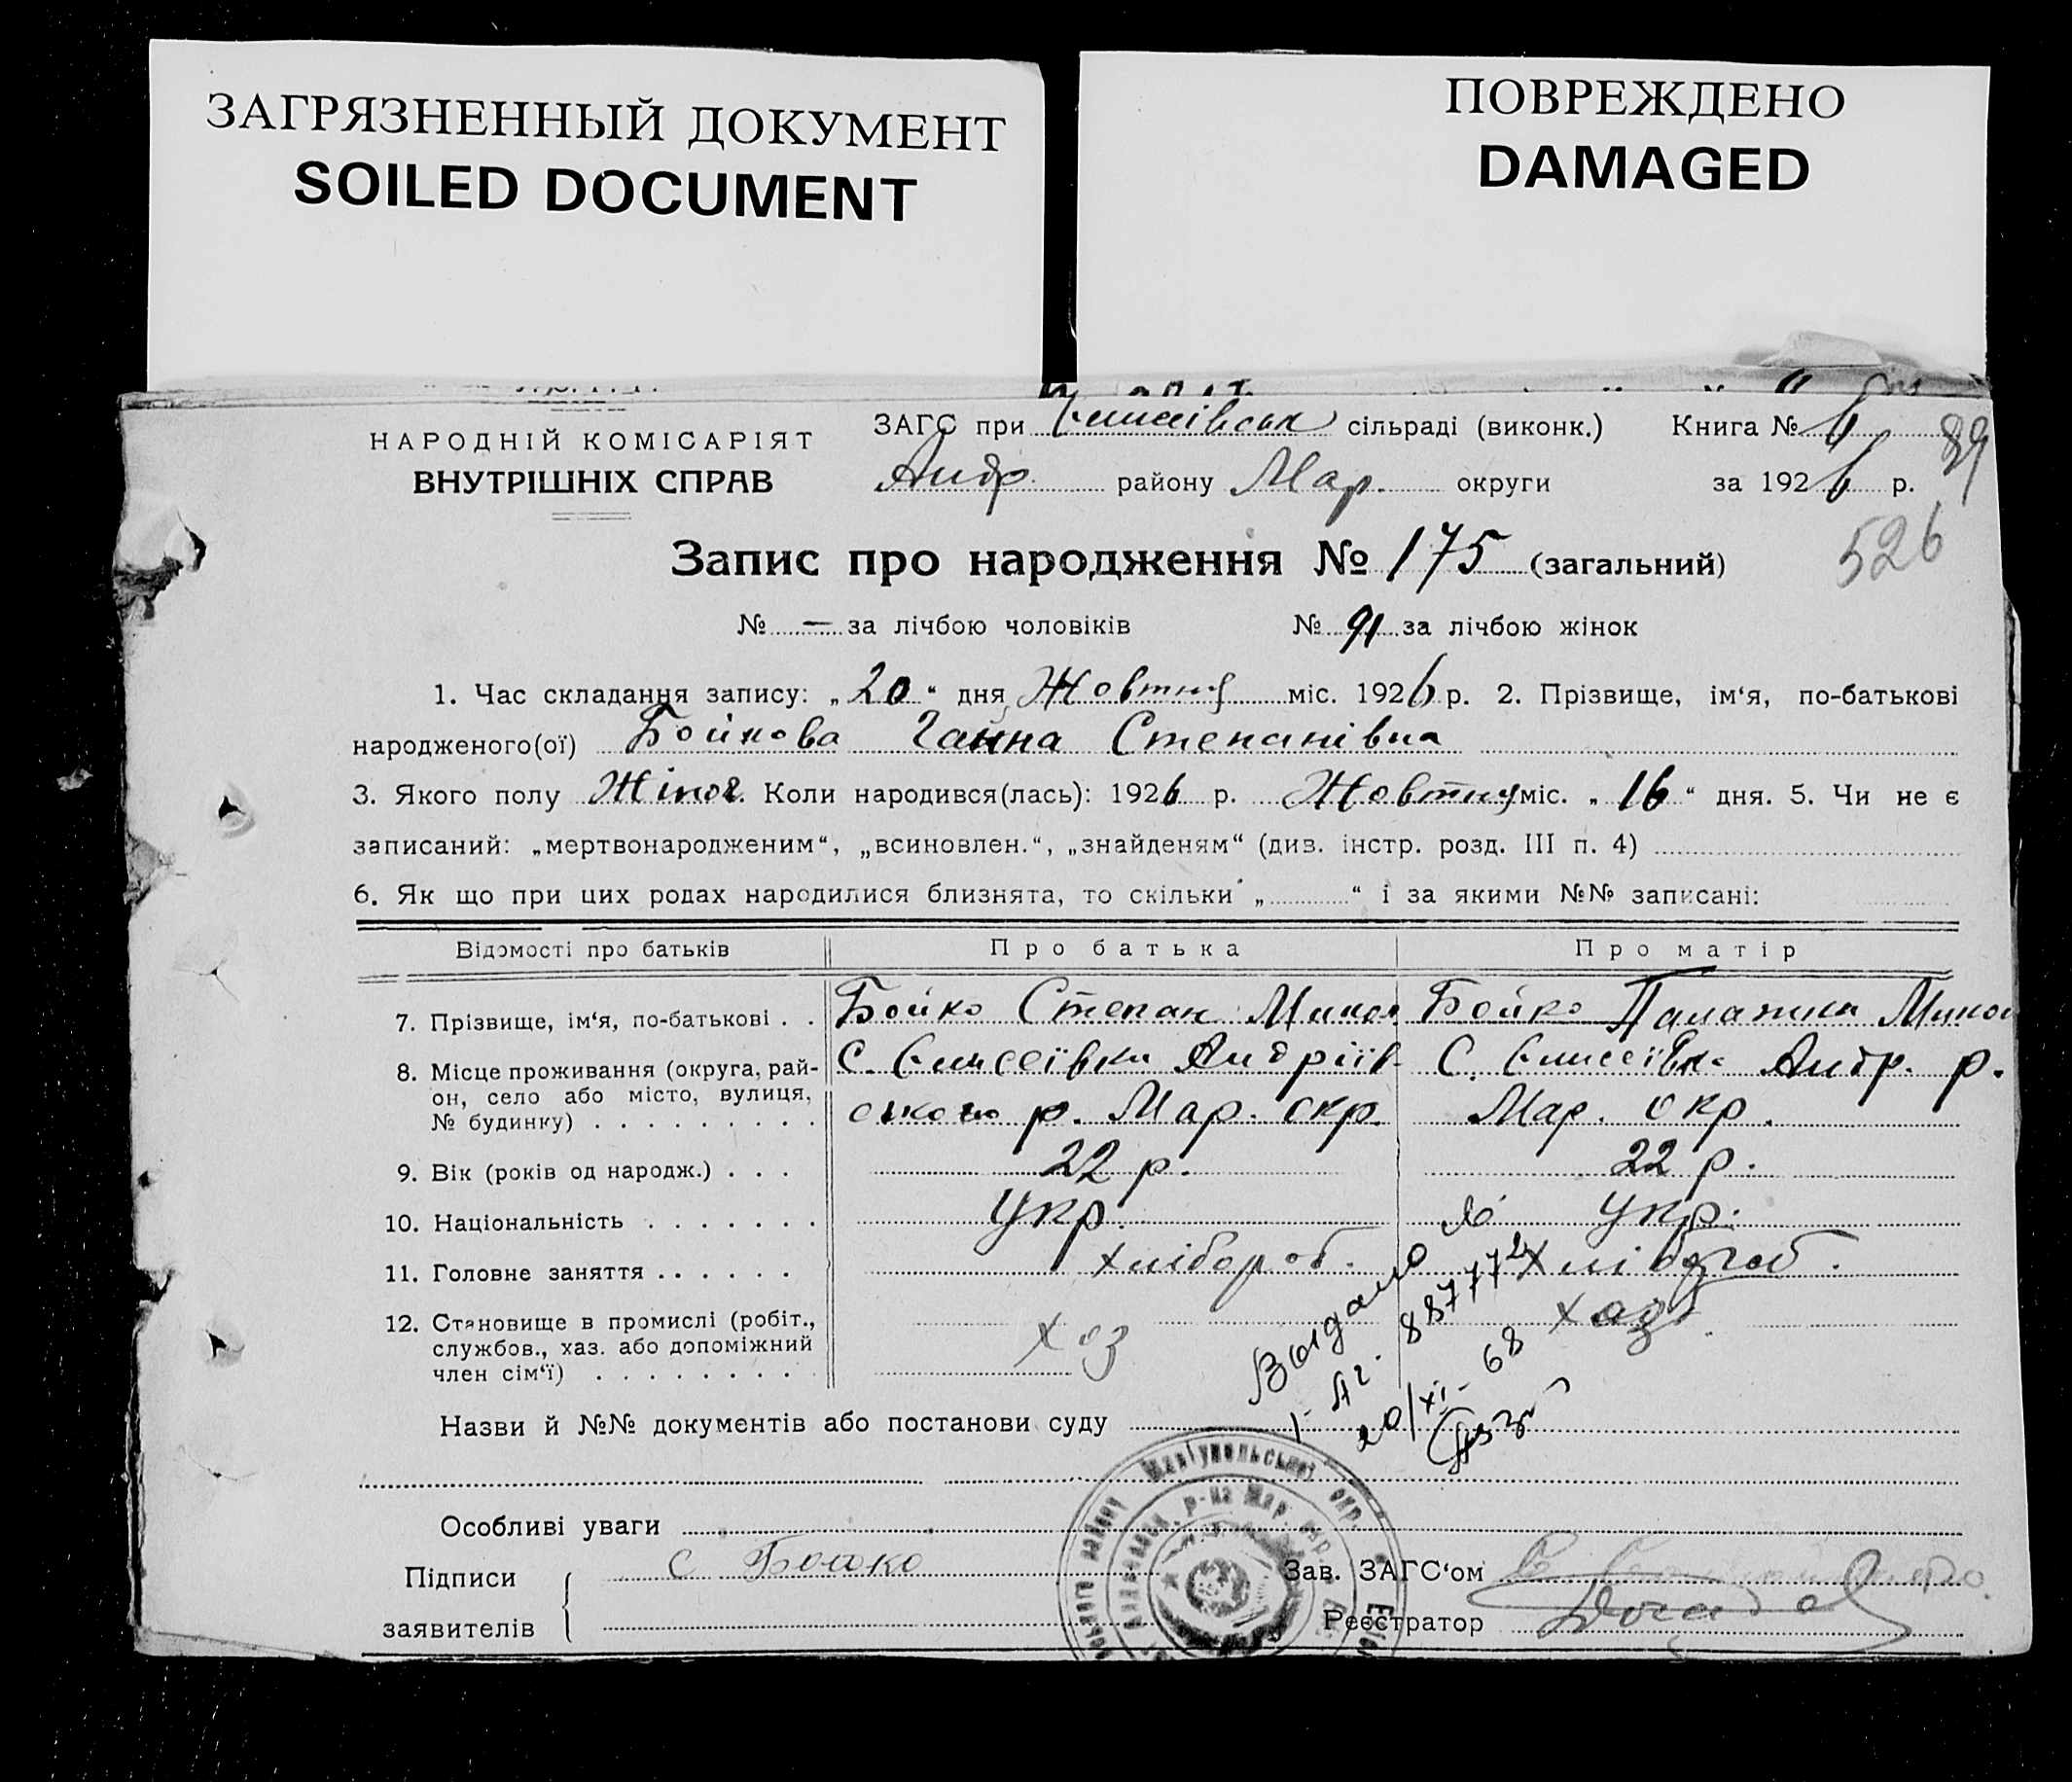 ЗАГРЯЗНЕННЫЙ ДОКУМЕНТ
SOILED DOCUMENT
ПОВРЕЖДЕНО
DAMAGED
НАРОДНІЙ КОМІСАРІЯТ
ВНУТРІШНІХ СПРАВ
ЗАГС при Єлисеївськ сільраді (виконк.) Книга № 89
Андр. району Мар. округи за 1926 р.
526
Запис про народження № 175 (загальний)
№ — за лічбою чоловіків № 91 за лічбою жінок
1. Час складання запису: „20“ дня Жовтня міс. 1926 р. 2. Прізвище, ім‘я, по-батькові
народженого(ої) Бойкова Ганна Степанівна
3. Якого полу Жіноч. Коли народився(лась): 1926 р. Жовтня міс. „16“ дня. 5. Чи не є
записаний: „мертвонародженим“, „всиновлен.“, „знайденям“ (див. інстр. розд. III п. 4)
6. Як що при цих родах народилися близнята, то скільки „ “ і за якими №№ записані:
Відомості про батьків Про батька Про матір
7. Прізвище, ім‘я, по-батькові . . Бойко Степан Микол. Бойко Палажка Микол
8. Місце проживання (округа, рай- С. Єлисеївка Андріїв- С. Єлисеївка Андр. р.
он, село або місто, вулиця, ського р. Мар. окр. Мар. окр.
№ будинку) . . . . . . . . .
9. Вік (років од народж.) . . . 22 р. 22 р.
10. Національність . . . . . . . Укр. Укр.
11. Головне заняття . . . . . . Хлібороб. Хлібороб.
12. Становище в промислі (робіт., Хаз Хаз.
службов., хаз. або допоміжний
член сім‘ї) . . . . . . . . .
Выдано
887772
20/XI - 68
Назви й №№ документів або постанови суду
Особливі уваги
Підписи С Бойко Зав. ЗАГС‘ом
заявителів Реєстратор
Маріупольської окр.
р-на Мар. окр.